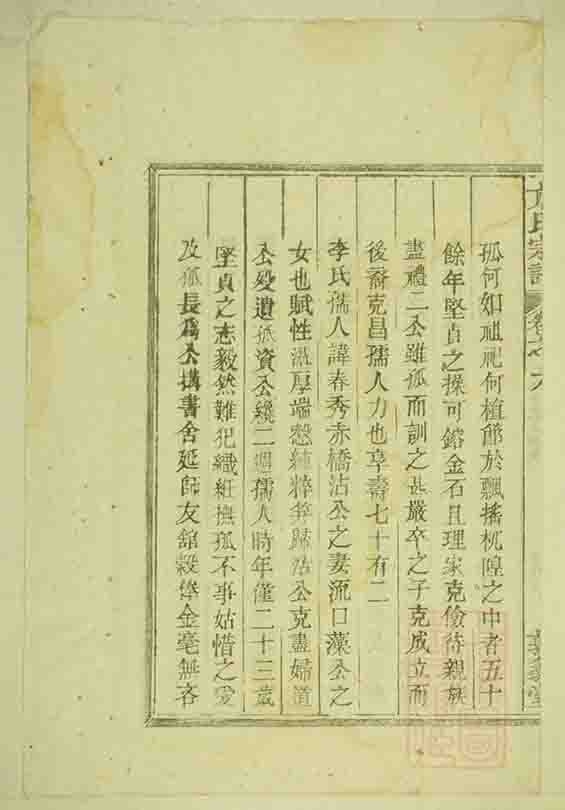 氏宗譜 卷之六
孤何如祖祀何植節於飄搖杌隉之中者五十
餘年堅貞之操可鎔金石且理家克儉待親族
盡禮二公雖孤而訓之甚嚴卒之子克成立而
後裔克昌孺人力也享壽七十有二
李氏孺人諱春秀赤橋沾公之妻流口藻公之
女也賦性溫厚端慤純粹笄歸沾公克盡婦道
公歿遺孤資公纔二週孺人時年僅二十三歲
堅貞之志毅然難犯織紝撫孤不事姑惜之愛
及孤長爲公搆書舍延師友舘穀俸金毫無吝